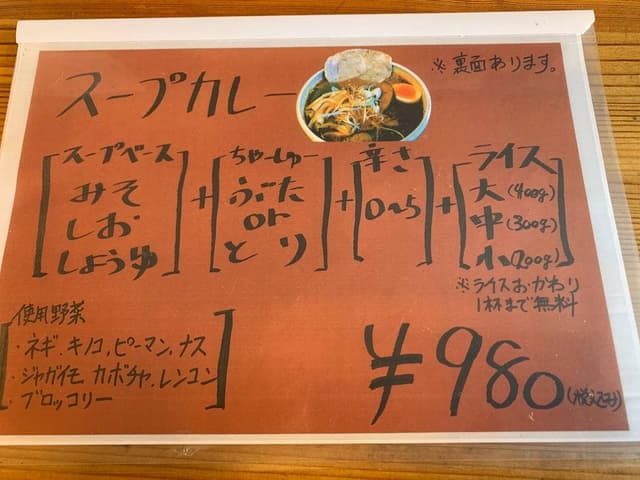 スープカレー
※裏面あります。
スープベース
みそ
しお
しょうゆ
+
ちゃーしゅー
ぶた
or
とり
+
辛さ
0~5
+
ライス
大(400g)
中(300g)
小(200g)
※ライスおかわり
1杯まで無料
使用野菜
・ネギ.キノコ,ピーマン,ナス
・ジャガイモ.カボチャ.レンコン
・ブロッコリー
¥980(税込み)